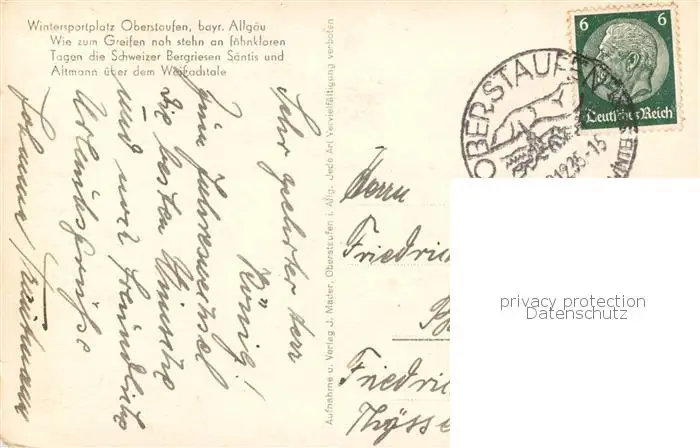 Wintersportplatz Oberstaufen, bayr. Allgäu
Wie zum Greifen nah stehn an föhnklaren
Tagen die Schweizer Bergriesen Säntis und
Altmann über dem Weißachtale
Sehr geehrter Herr
König!
Zum Jahreswechsel
die besten Wünsche
und noch freundliche
Urlaubsgrüße
Johanna
Aufnahme u. Verlag J. Mader, Oberstaufen i. Allg. Jede Art Vervielfältigung verboten
6 6
Deutsches Reich
OBERSTAUFEN
Herrn
Friedric
Friedric
Thysse
privacy protection
Datenschutz